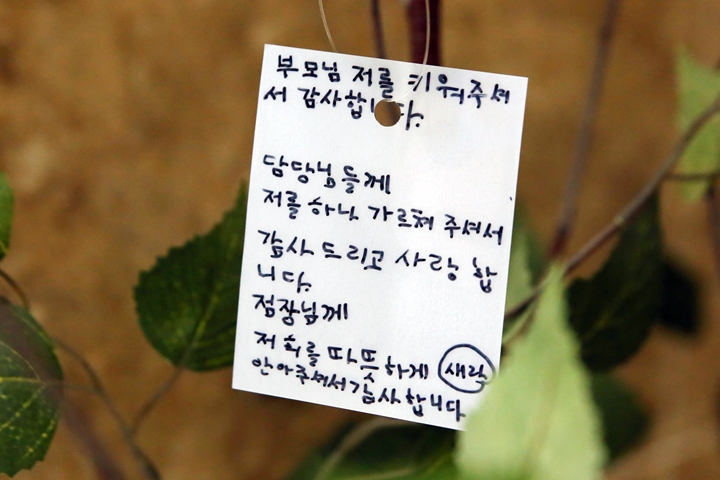 부모님 저를 키워주셔
서 감사합니다.
담당님들께
저를 하나 가르쳐 주셔서
감사드리고 사랑합
니다.
점장님께
저희를 따뜻하게
안아주셔서 감사합니다